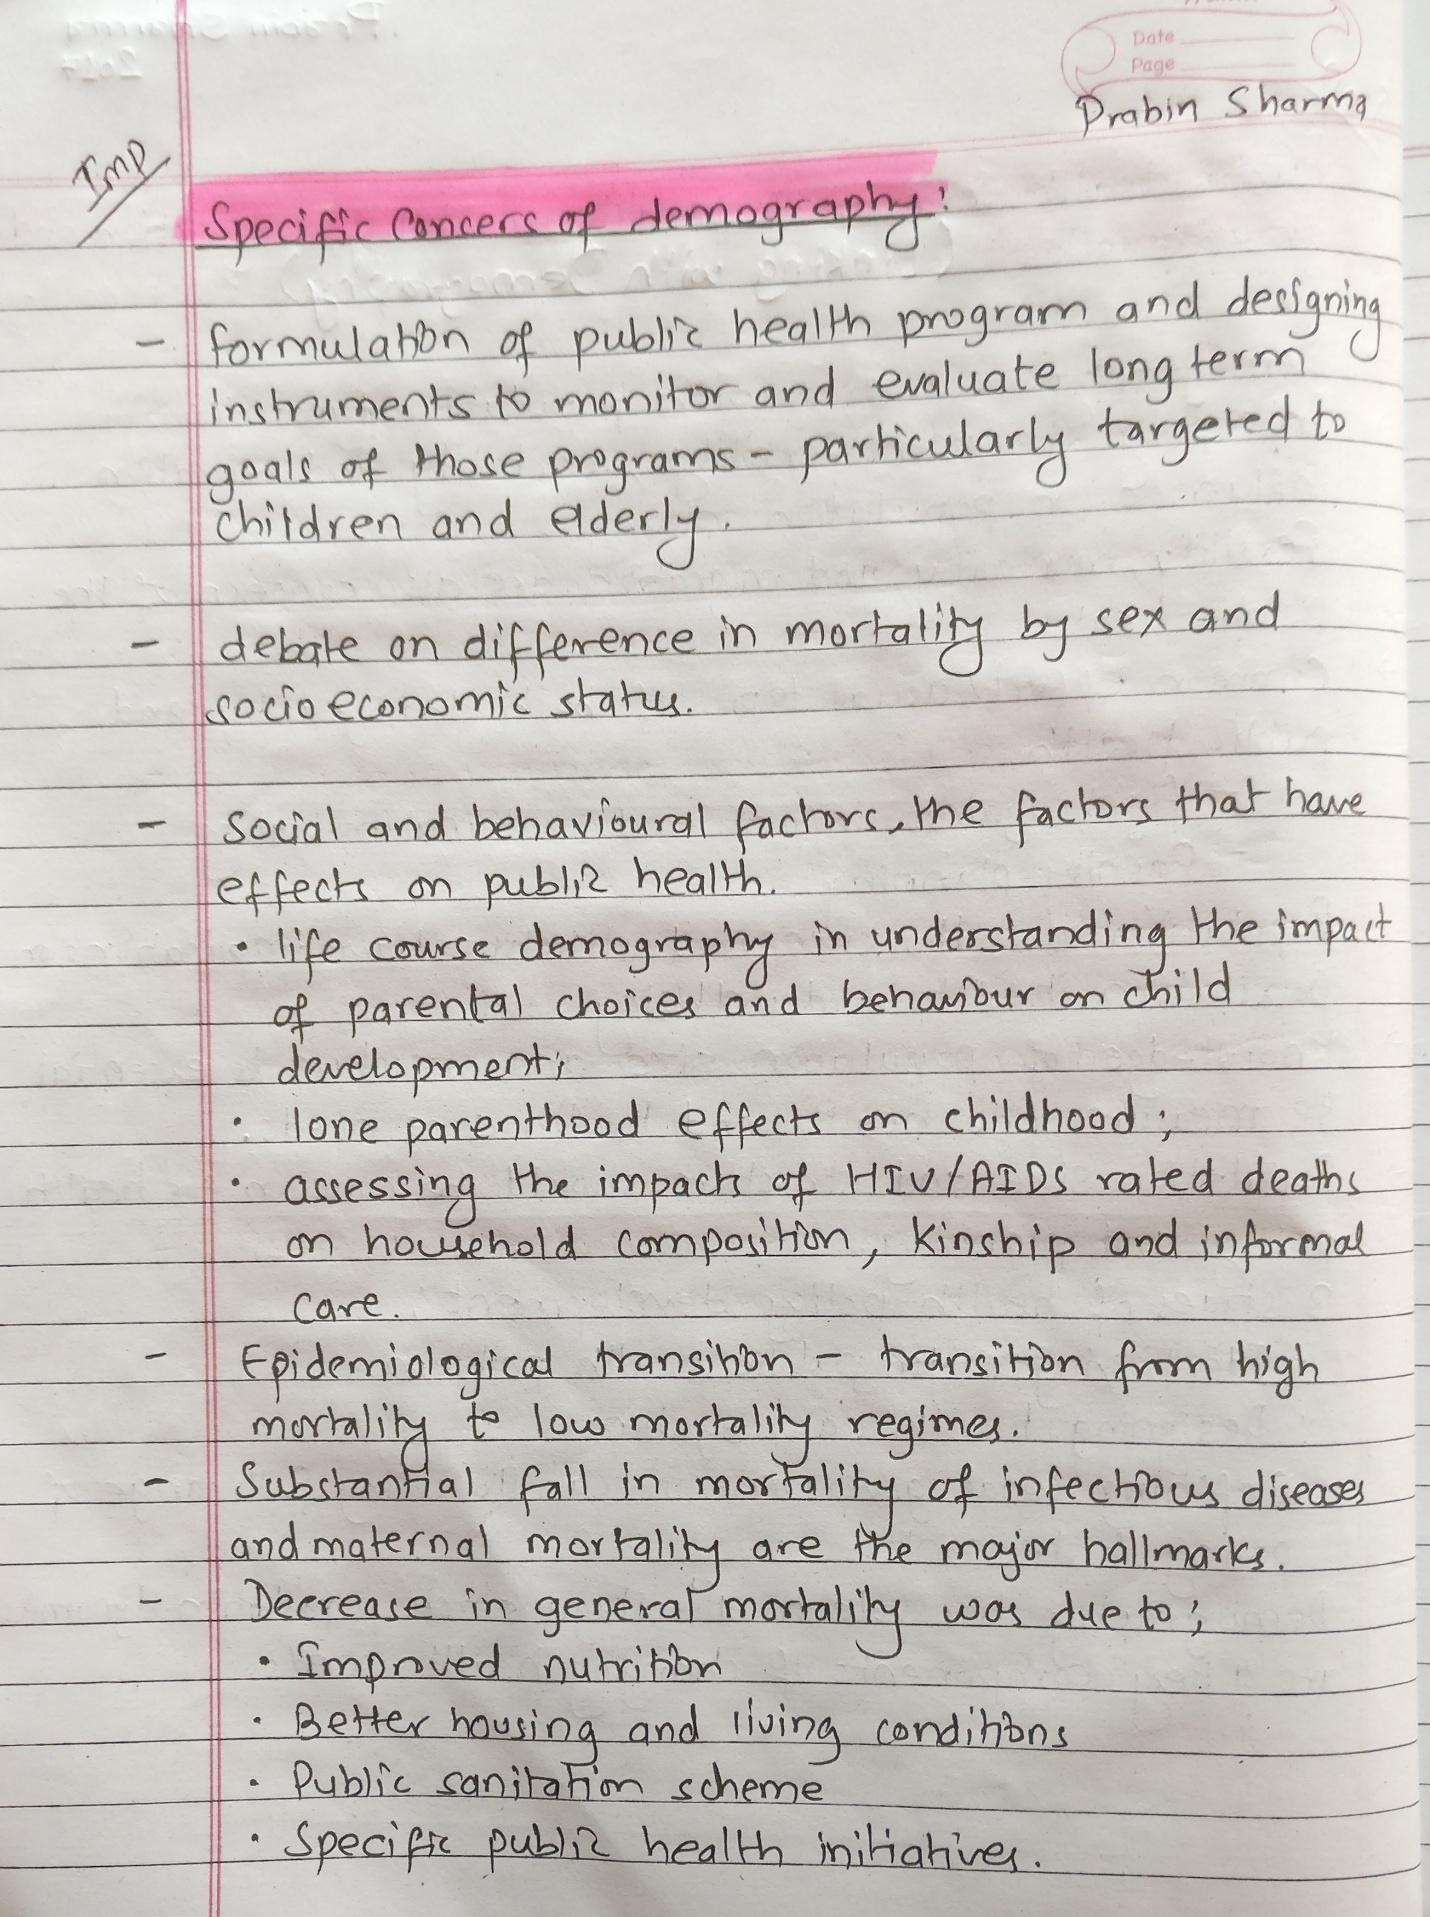 Date
Page
Prabin Sharma
Imp
Specific Concers of demography:
- formulation of public health program and designing
instruments to monitor and evaluate long term
goals of those programs - particularly targeted to
children and elderly.
- debate on difference in mortality by sex and
socioeconomic status.
- Social and behavioural factors, the factors that have
effects on public health.
• life course demography in understanding the impact
of parental choices and behaviour on child
development;
• lone parenthood effects on childhood;
• assessing the impacts of HIV/AIDS rated deaths
on household composition, kinship and informal
care.
- Epidemiological transition - transition from high
mortality to low mortality regimes.
- Substantial fall in mortality of infectious diseases
and maternal mortality are the major hallmarks.
- Decrease in general mortality was due to;
• Improved nutrition
• Better housing and living conditions
• Public sanitation scheme
• Specific public health initiatives.